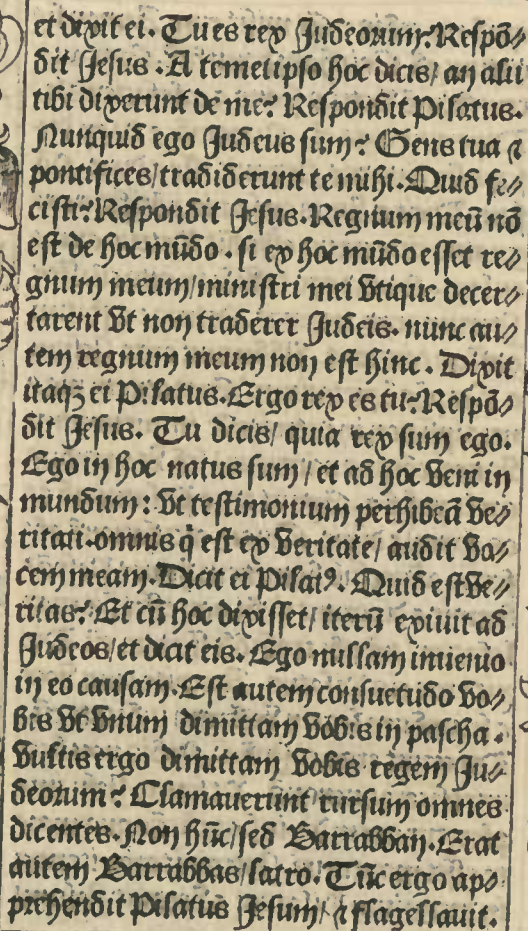 et dixit ei. Tu es rex Judeorum? Respō⸗
dit Jesus. A temetipso hoc dicis/ an alii
tibi dixerunt de me? Respondit Pilatus.
Nunquid ego Judeus sum? Gens tua ⁊
pontifices/tradiderunt te mihi. Quid fe⸗
cisti? Respondit Jesus. Regnum meū nō
est de hoc mūdo. si ex hoc mūdo esset re⸗
gnum meum/ministri mei vtique decer⸗
tarent vt non traderer Judeis. nunc au⸗
tem regnum meum non est hinc. Dixit
itaqꝫ ei Pilatus. Ergo rex es tu? Respō⸗
dit Jesus. Tu dicis/ quia rex sum ego.
Ego in hoc natus sum/ et ad hoc veni in
mundum: vt testimonium perhibeā ve⸗
ritati. omnis q̄ est ex veritate/ audit vo⸗
cem meam. Dicit ei Pilatꝰ. Quid est ve⸗
ritas? Et cū hoc dixisset/ iterū exiuit ad
Judeos/et dicit eis. Ego nullam inuenio
in eo causam. Est autem consuetudo vo⸗
bis vt vnum dimittam vobis in pascha.
vultis ergo dimittam vobis regem Ju⸗
deorum? Clamauerunt rursum omnes
dicentes. Non hūc/sed Barrabban. Erat
autem Barrabbas/latro. Tūc ergo ap⸗
prehendit Pilatus Jesum/ ⁊ flagellauit.